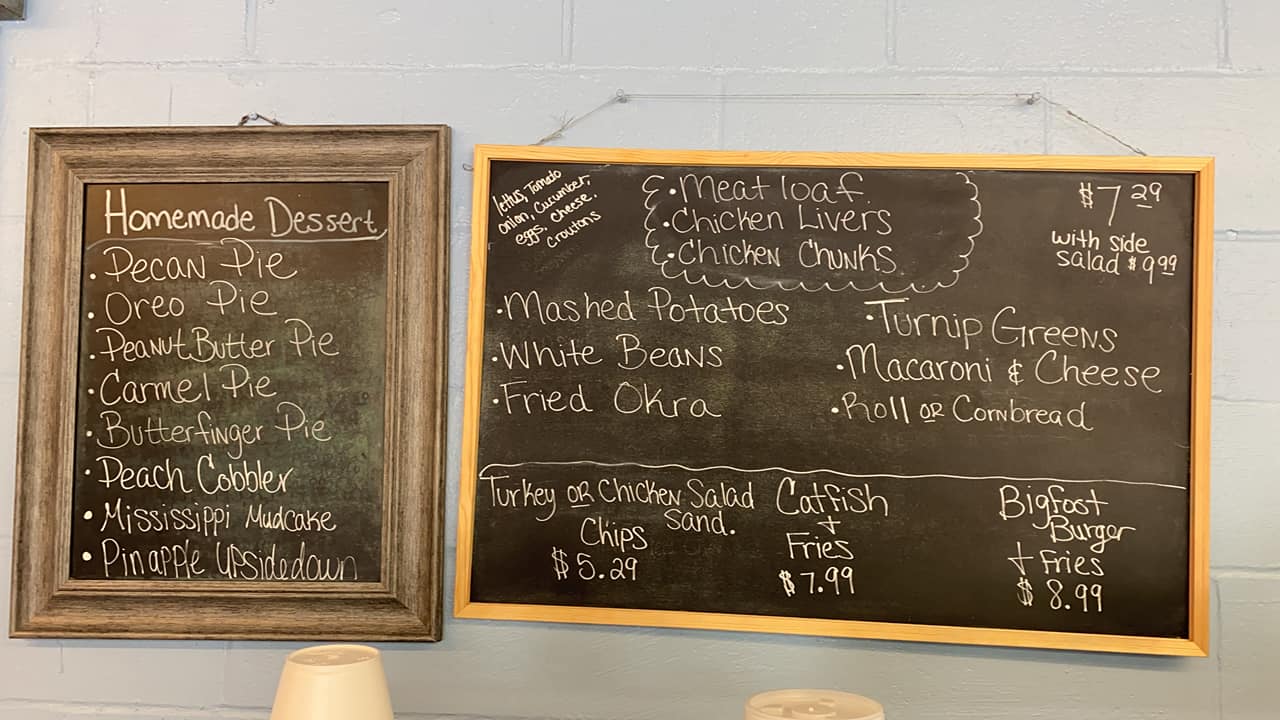 Homemade Dessert
• Pecan Pie
• Oreo Pie
• Peanut Butter Pie
• Carmel Pie
• Butterfinger Pie
• Peach Cobbler
• Mississippi Mudcake
• Pinapple Upsidedown
lettus, Tomato
onion, Cucumber,
eggs, cheese.
croutons
• Meat loaf.
• Chicken Livers
• Chicken Chunks
$7 29
with side
salad $9 99
• Mashed Potatoes
• White Beans
• Fried Okra
• Turnip Greens
• Macaroni & Cheese
• Roll or Cornbread
Turkey or Chicken Salad
Sand.
Chips
$5.29
Catfish
+
Fries
$7.99
Bigfoot
Burger
+ Fries
$8.99